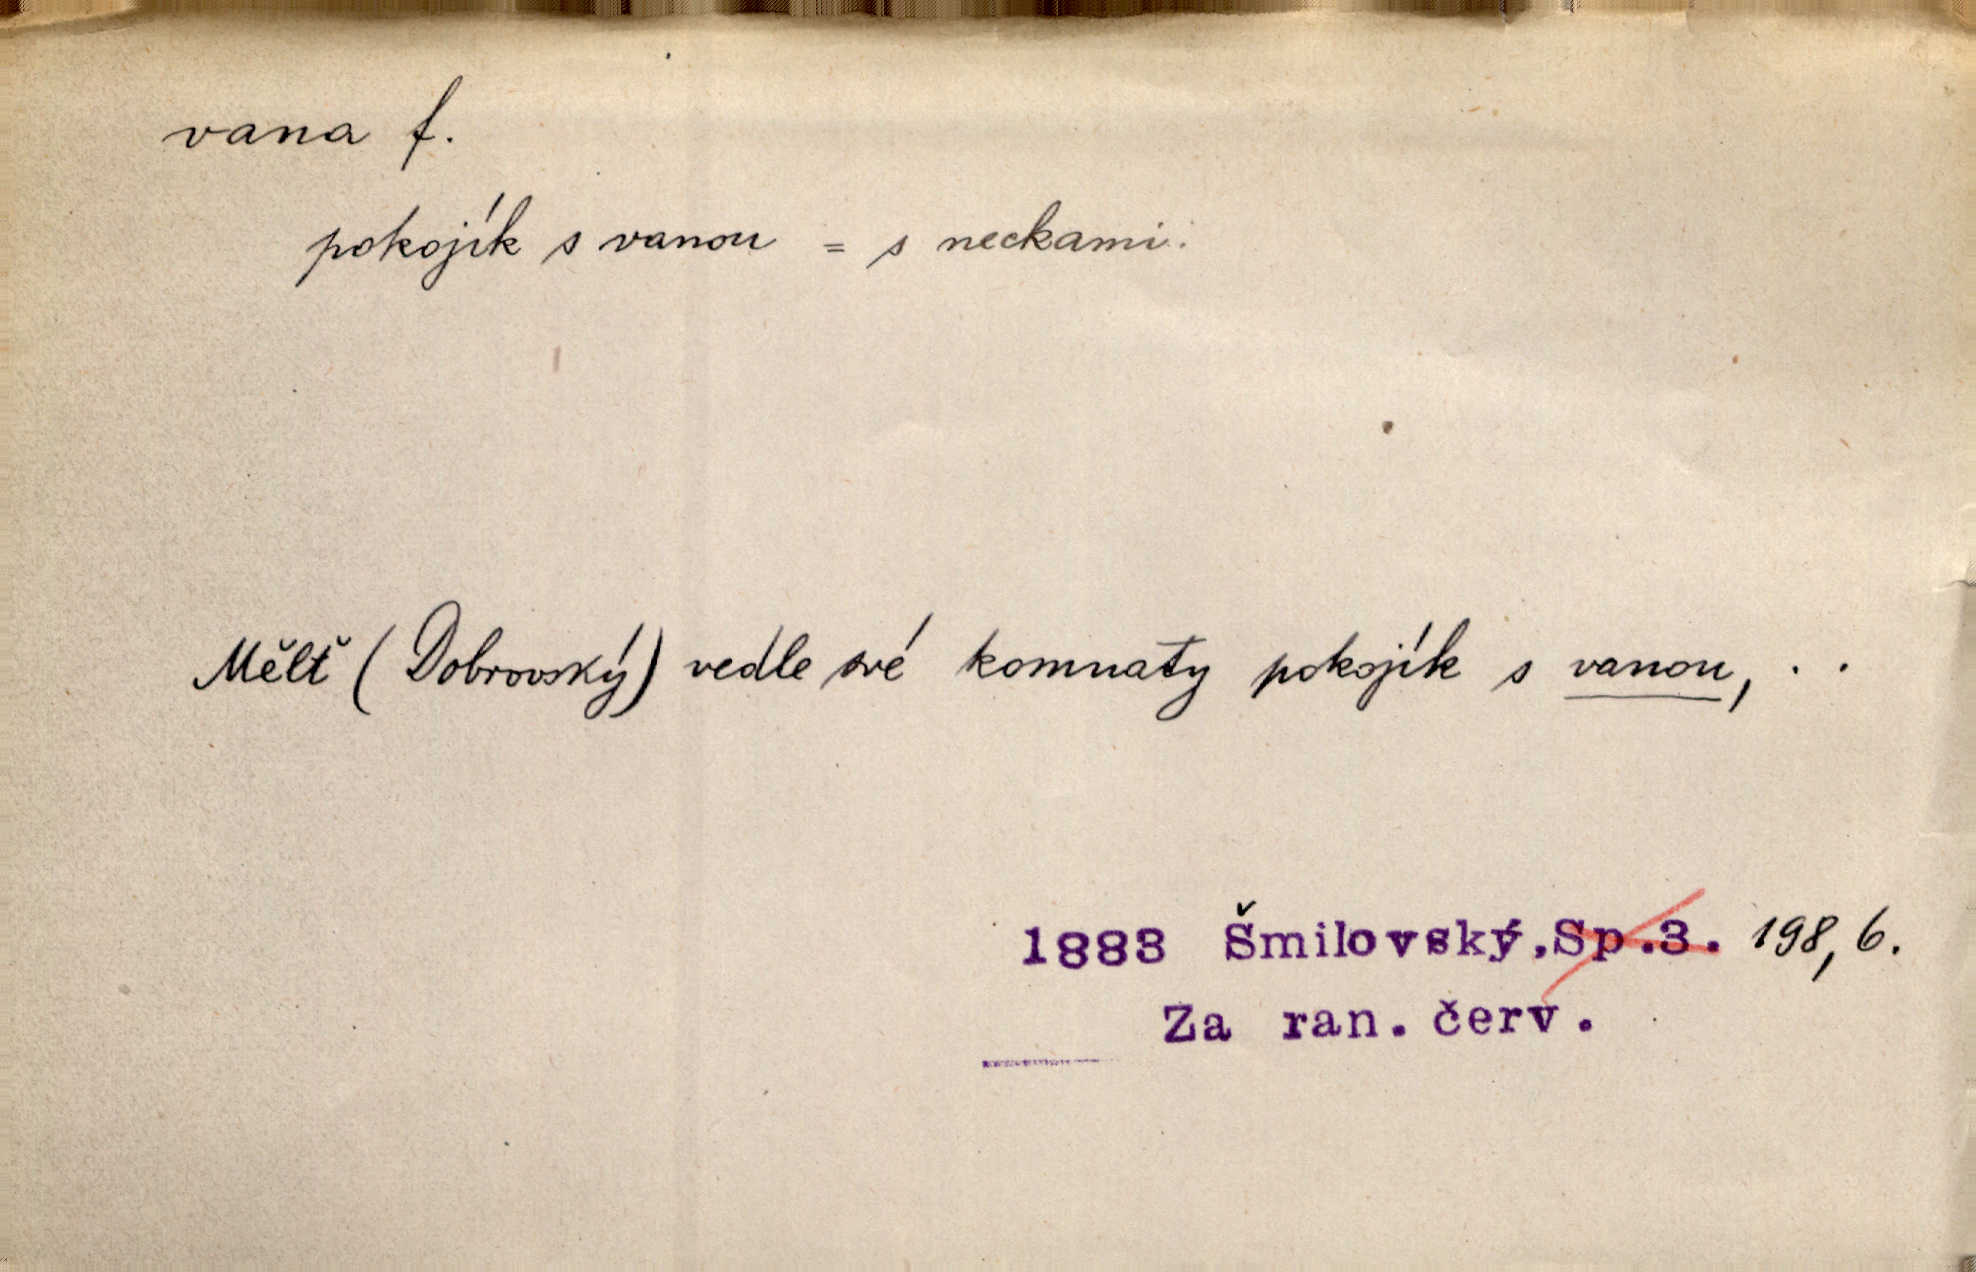 vana f.
pokojík s vanou = s neckami.
Mělť (Dobrovský) vedle své komnaty pokojík s vanou, . .
1883 Šmilovský, Sp.3. 198,6.
Za ran. červ.